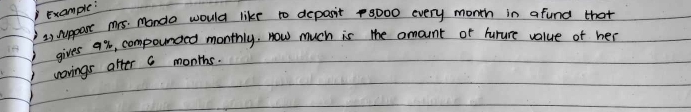 Example:
1) Suppose Mrs. Monda would like to deposit ₱3,000 every month in a fund that
gives 9%, compounded monthly. How much is the amount of future value of her
savings after 6 months.